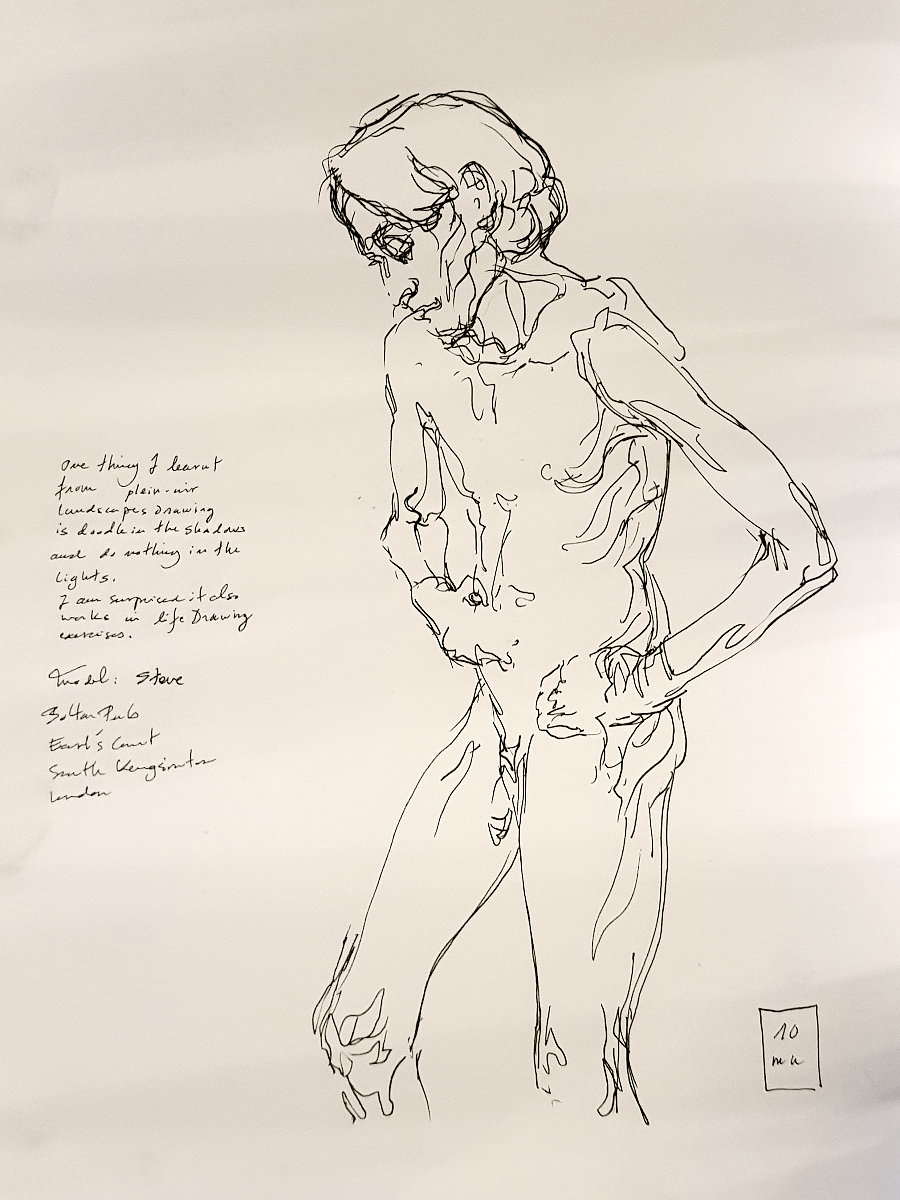 One thing I learnt
from plein-air
landscapes drawing
is doodle in the shadows
and do nothing in the
lights.
I am surprised it also
works in life Drawing
exercises.
Model: Steve
Bolton Pub
Earl's Court
South Kengsinton
London
10
mn